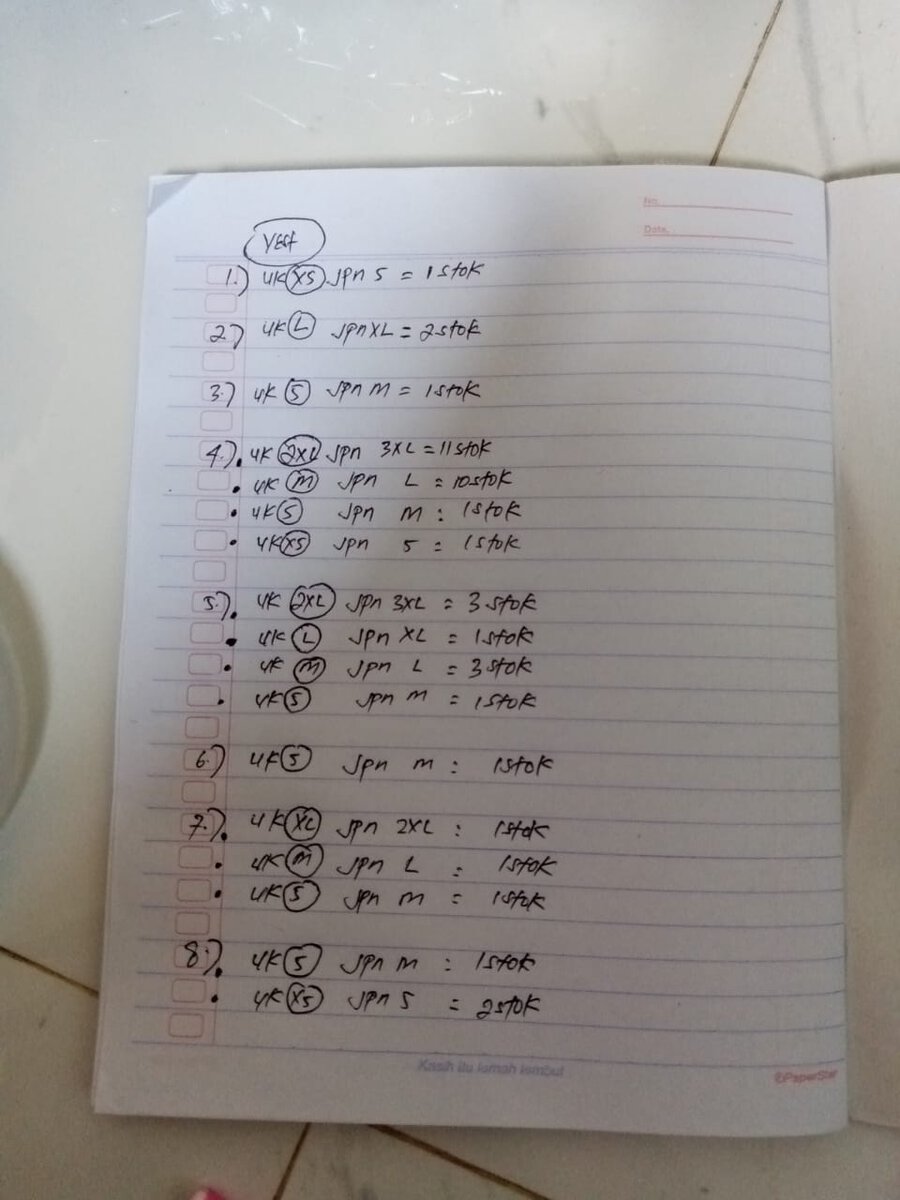 No.
Date.
Vest
1.) UK XS Jpn S = 1 stok
2.) UK L Jpn XL = 2 stok
3.) UK S Jpn M = 1 stok
4.) • UK 2XL Jpn 3XL = 11 stok
• UK M Jpn L = 10 stok
• UK S Jpn M : 1 stok
• UK XS Jpn S = 1 stok
5.) • UK 2XL Jpn 3XL = 3 stok
• UK L Jpn XL = 1 stok
• UK M Jpn L = 3 stok
• UK S Jpn M = 1 stok
6.) UK S Jpn M : 1 stok
7.) • UK XL Jpn 2XL : 1 stok
• UK M Jpn L : 1 stok
• UK S Jpn M = 1 stok
8.) • UK S Jpn M : 1 stok
• UK XS Jpn S = 2 stok
Kasih itu lemah lembut
PaperStar